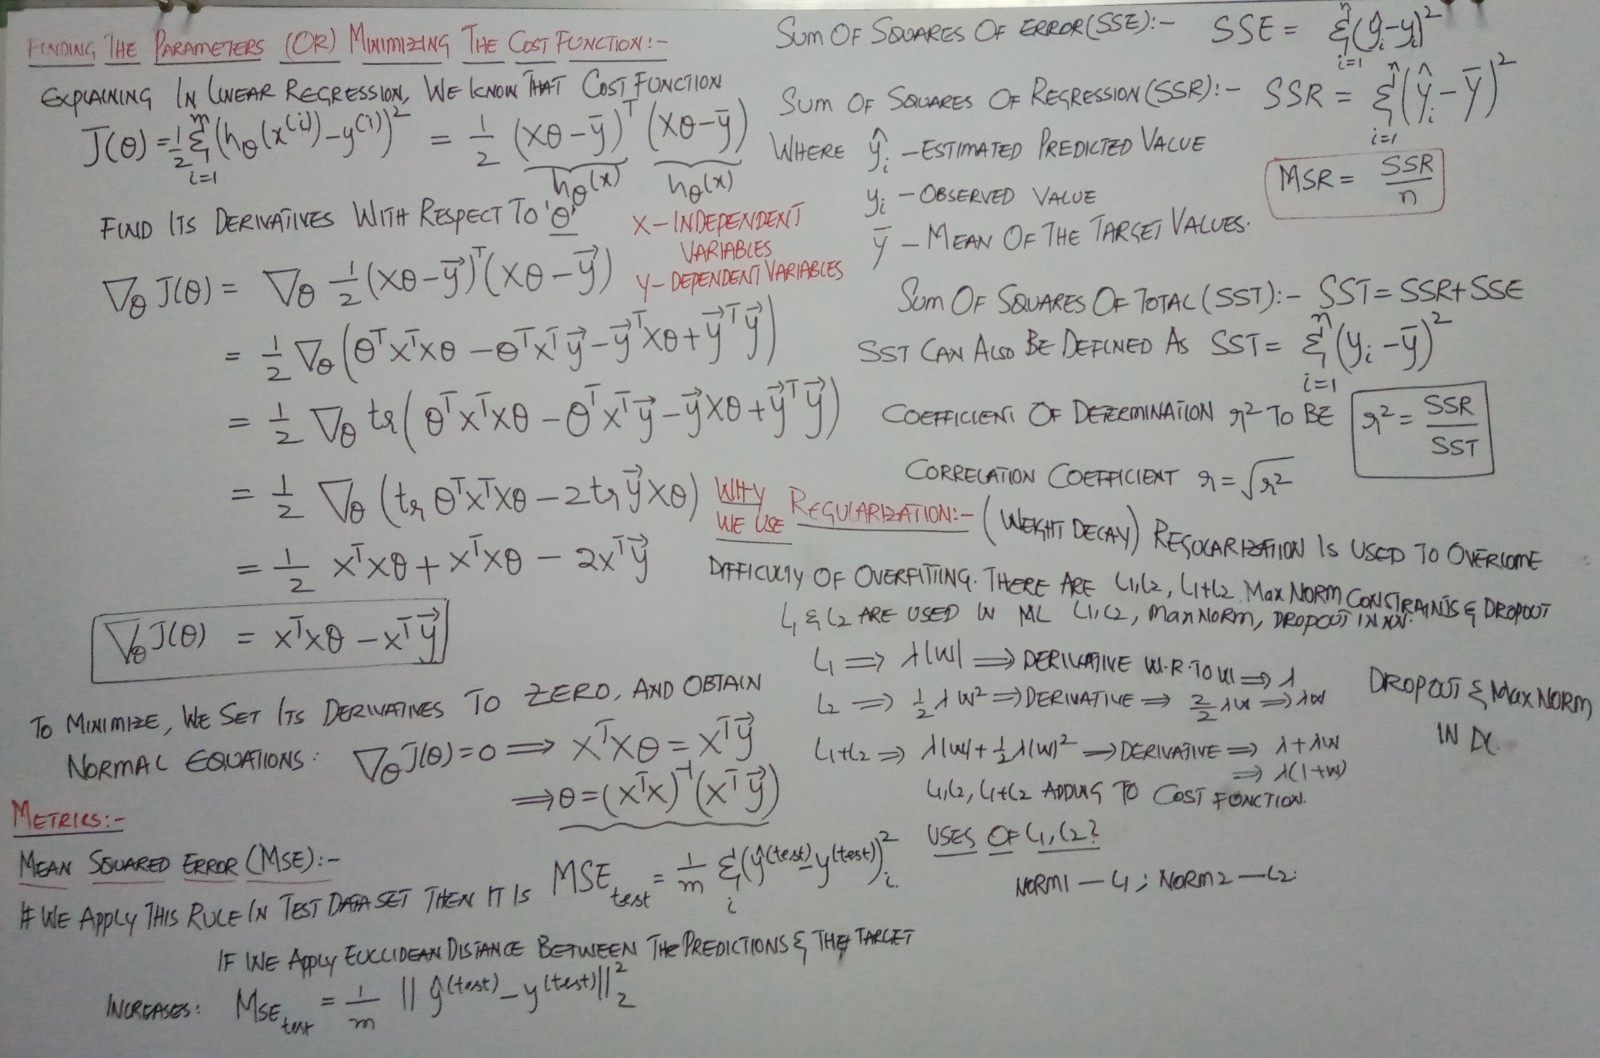 FINDING THE PARAMETERS (OR) MINIMIZING THE COST FUNCTION:-
EXPLAINING IN LINEAR REGRESSION, WE KNOW THAT COST FUNCTION
J(θ) = 1/2 Σ_{i=1}^{m} (h_θ(x^(i)) - y^(i))² = 1/2 (Xθ - ȳ)^T (Xθ - ȳ)
h_θ(x) h_θ(x)
FIND ITS DERIVATIVES WITH RESPECT TO 'θ'
X - INDEPENDENT
VARIABLES
Y - DEPENDENT VARIABLES
∇_θ J(θ) = ∇_θ 1/2 (Xθ - y⃗)^T (Xθ - y⃗)
= 1/2 ∇_θ (θ^T X^T Xθ - θ^T X^T y⃗ - y⃗^T Xθ + y⃗^T y⃗)
= 1/2 ∇_θ tr(θ^T X^T Xθ - θ^T X^T y⃗ - y⃗ Xθ + y⃗^T y⃗)
= 1/2 ∇_θ (tr θ^T X^T Xθ - 2 tr y⃗ Xθ)
= 1/2 X^T Xθ + X^T Xθ - 2X^T y⃗
∇_θ J(θ) = X^T Xθ - X^T y⃗
TO MINIMIZE, WE SET ITS DERIVATIVES TO ZERO, AND OBTAIN
NORMAL EQUATIONS: ∇_θ J(θ) = 0 ⟹ X^T Xθ = X^T y⃗
⟹ θ = (X^T X)^-1 (X^T y⃗)
METRICS:-
MEAN SQUARED ERROR (MSE):-
IF WE APPLY THIS RULE IN TEST DATASET THEN IT IS MSE_test = 1/m Σ_i (ŷ^(test) - y^(test))_i²
IF WE APPLY EUCLIDEAN DISTANCE BETWEEN THE PREDICTIONS & THE TARGET
INCREASES: MSE_test = 1/m || ŷ^(test) - y^(test) ||_2²
SUM OF SQUARES OF ERROR (SSE):- SSE = Σ_{i=1}^{n} (ŷ_i - y_i)²
SUM OF SQUARES OF REGRESSION (SSR):- SSR = Σ_{i=1}^{n} (ŷ_i - ȳ)²
WHERE ŷ_i - ESTIMATED PREDICTED VALUE
y_i - OBSERVED VALUE
ȳ - MEAN OF THE TARGET VALUES.
MSR = SSR/n
SUM OF SQUARES OF TOTAL (SST):- SST = SSR + SSE
SST CAN ALSO BE DEFINED AS SST = Σ_{i=1}^{n} (y_i - ȳ)²
COEFFICIENT OF DETERMINATION r² TO BE r² = SSR/SST
CORRELATION COEFFICIENT r = √r²
WHY WE USE REGULARIZATION:- (WEIGHT DECAY) REGULARIZATION IS USED TO OVERCOME
DIFFICULTY OF OVERFITTING. THERE ARE L1, L2, L1+L2, MAX NORM CONSTRAINTS & DROPOUT
L1 & L2 ARE USED IN ML L1, L2, MAX NORM, DROPOUT IN NN.
L1 ⟹ λ|W| ⟹ DERIVATIVE W.R.TO W ⟹ λ
L2 ⟹ 1/2 λW² ⟹ DERIVATIVE ⟹ 2/2 λW ⟹ λW
L1+L2 ⟹ λ|W| + 1/2 λ(W)² ⟹ DERIVATIVE ⟹ λ + λW
⟹ λ(1+W)
DROPOUT & MAX NORM
IN DL
L1, L2, L1+L2 ADDING TO COST FUNCTION.
USES OF L1, L2?
NORM1 - L1; NORM2 - L2.